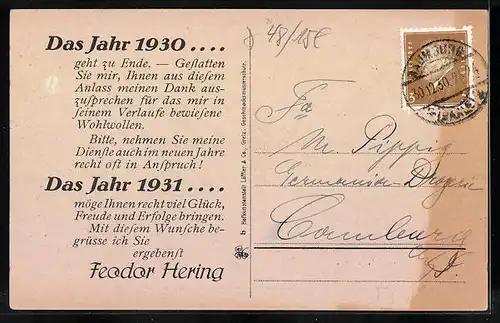 Das Jahr 1930 . . . .
geht zu Ende. — Gestatten
Sie mir, Ihnen aus diesem
Anlass meinen Dank aus-
zusprechen für das mir in
seinem Verlaufe bewiesene
Wohlwollen.
Bitte, nehmen Sie meine
Dienste auch im neuen Jahre
recht oft in Anspruch!
Das Jahr 1931 . . . .
möge Ihnen recht viel Glück,
Freude und Erfolge bringen.
Mit diesem Wunsche be-
grüsse ich Sie
ergebenst
Feodor Hering
Reklameanstalt Löffler & Co., Greiz. Geschmacksmusterschutz.
NAUMBURG
30.12.30
(SAALE)
3
Fa
M. Pippig
Germania-Drogerie
Camburg